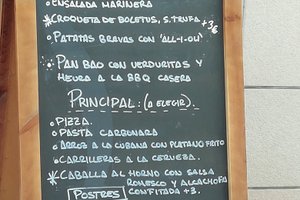 • ENSALADA MARINERA
* CROQUETA DE BOLETUS, S. TRUFA +3€
• PATATAS BRAVAS CON "ALL-I-OLI"
* PAN BAO CON VERDURITAS Y
HEURA A LA BBQ CASERA
PRINCIPAL: (A ELEGIR).
• PIZZA.
• PASTA CARBONARA
• ARROS A LA CUBANA CON PLATANO FRITO
• CARRILLERAS A LA CERVEZA.
* CABALLA AL HORNO CON SALSA
ROMESCO Y ALCACHOFA
CONFITADA +3.
POSTRES